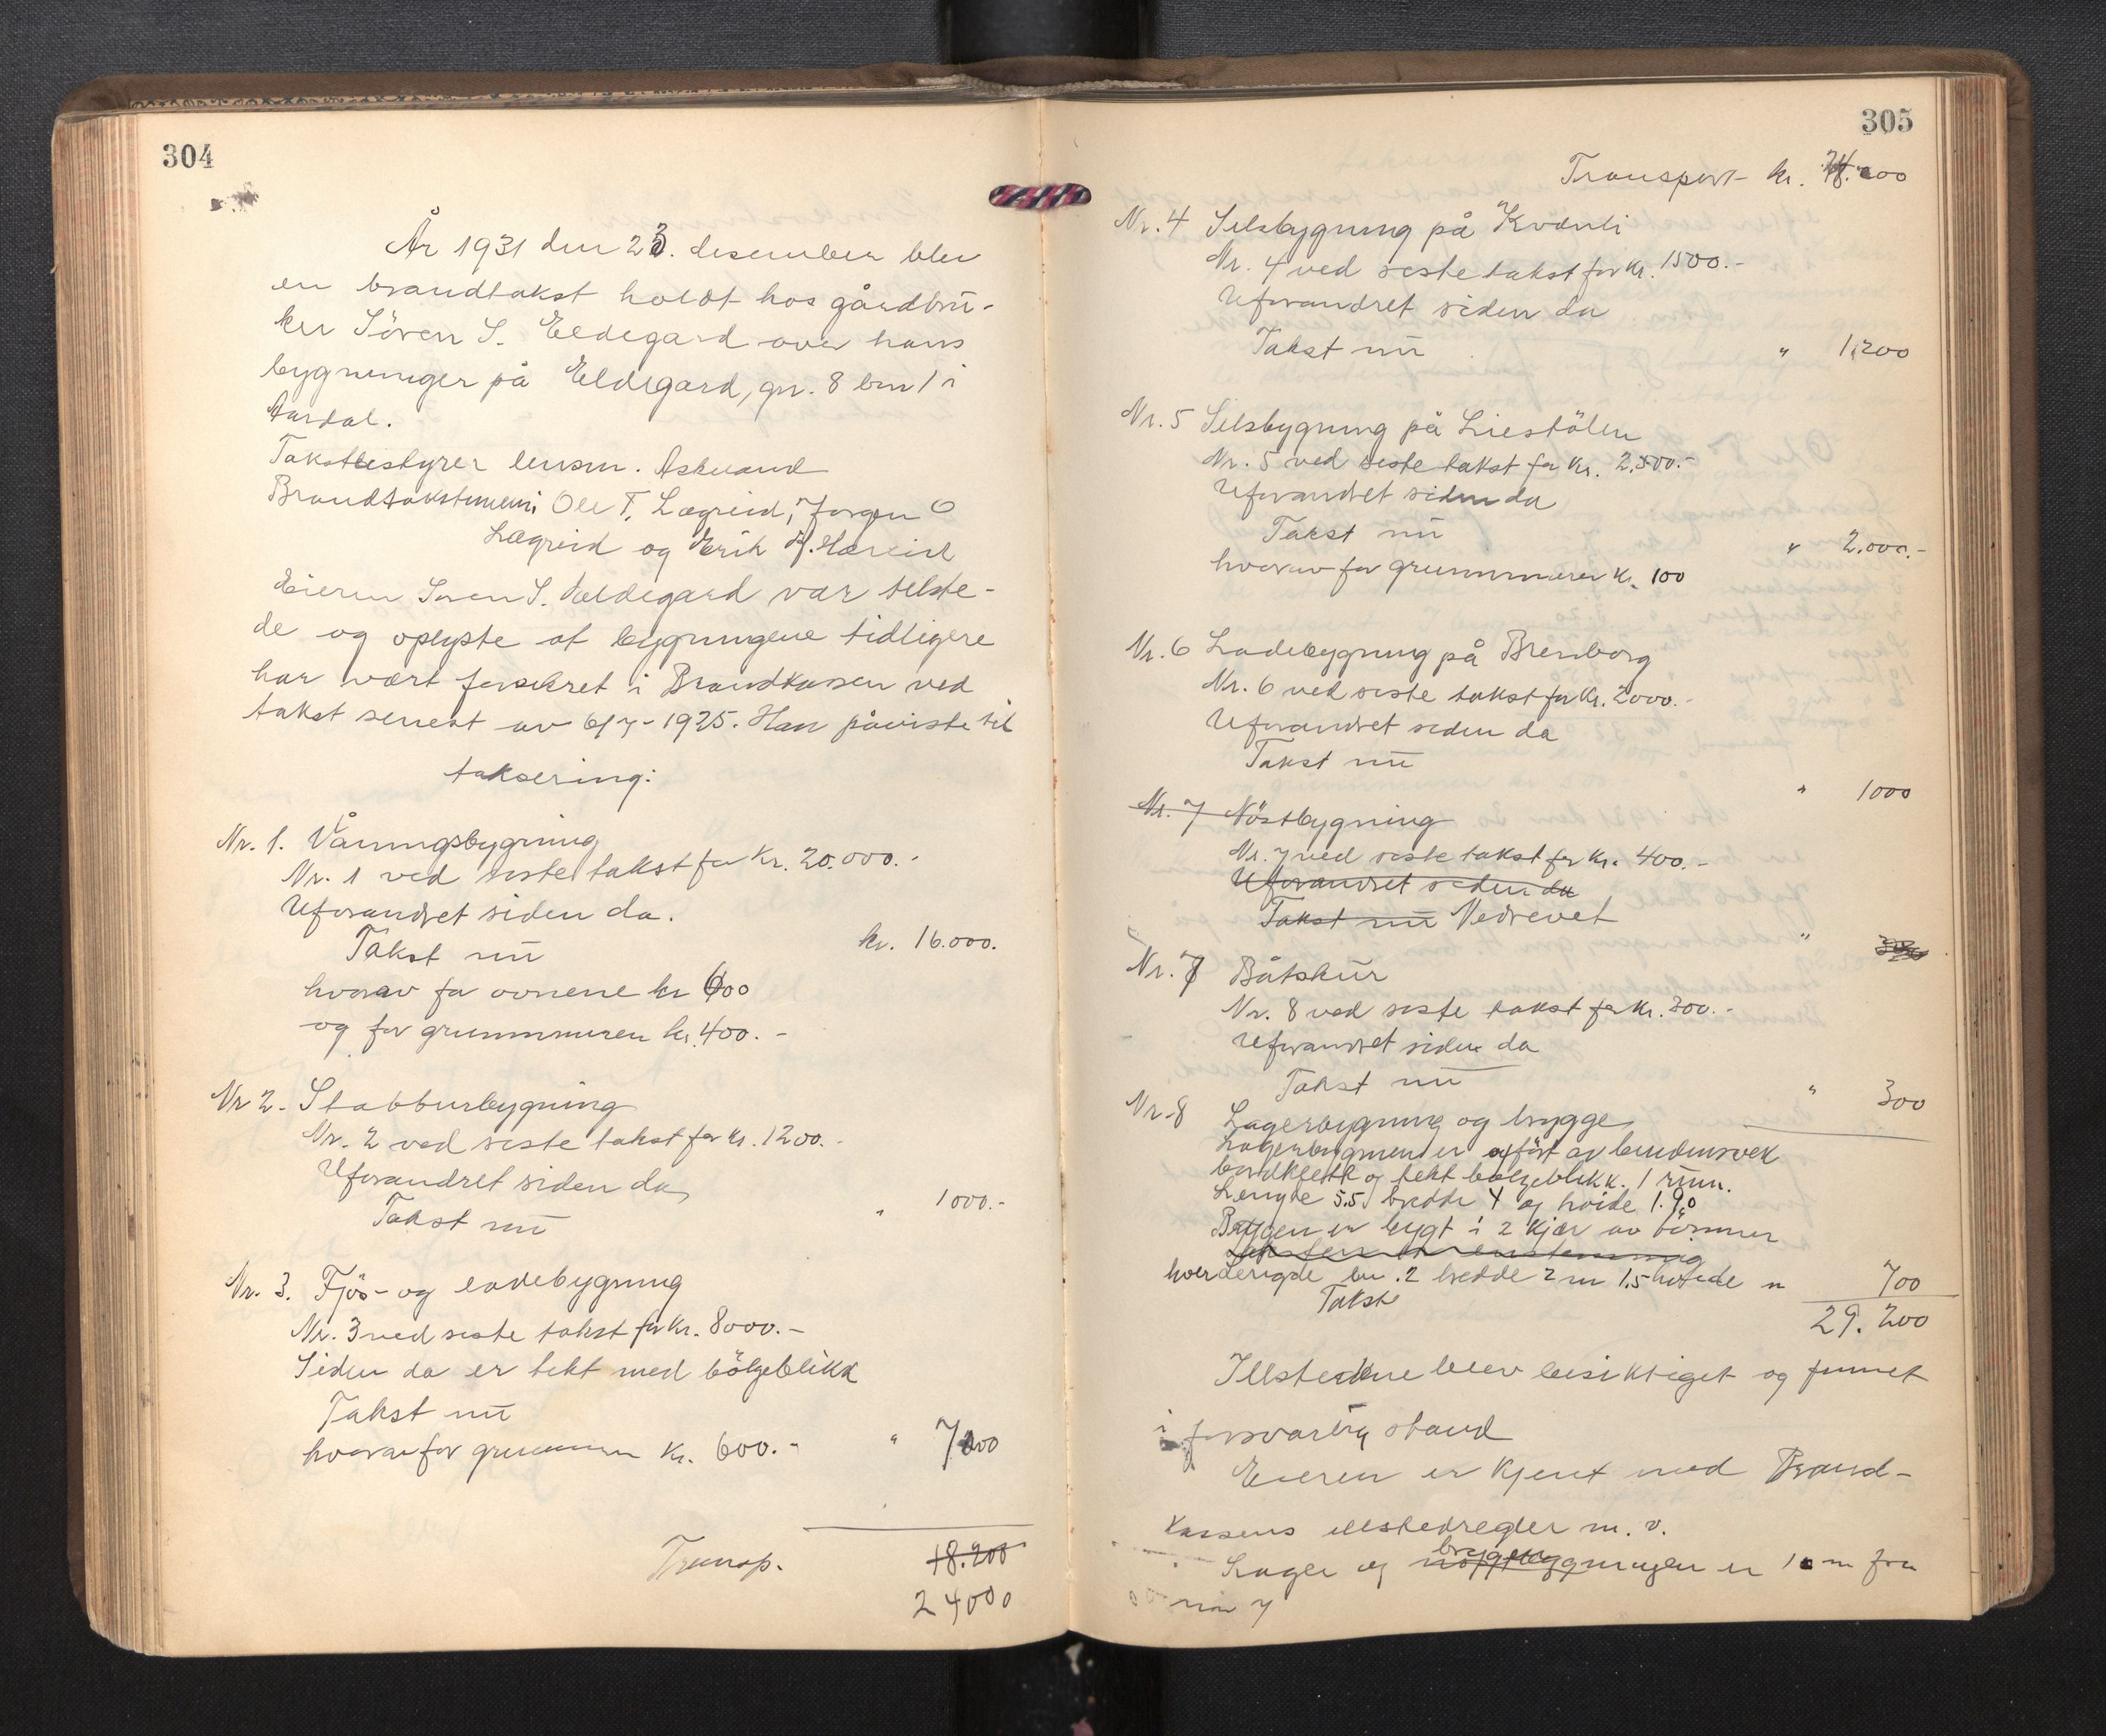 304
År 1931 den 23. desember blev
en brandtakst holdt hos gårdbru-
ker Sören S. Eldegard over hans
bygninger på Eldegard, gn. 8 bnr 1 i
Aardal.
Takstbestyrer lensm. Askvand
Brandtakstmenn: Ole T. Lægreid, Jørgen O
Lægreid og Erik H. Hæreid
Eieren Søren S. Eldegard var tilste-
de og oplyste at bygningene tidligere
har vært forsikret i Brandkassen ved
takst senest av 6/7-1925. Han påviste til
taksering:
Nr. 1. Våningsbygning
Nr. 1 ved siste takst for kr. 20.000.-
Uforandret siden da.
Takst nu kr. 16.000.
hvorav for ovnene kr 600
og for grunnmuren kr. 400.-
Nr 2. Stabbursbygning
Nr. 2 ved siste takst for kr. 1200.-
Uforandret siden da,
Takst nu " 1000.-
Nr. 3. Fjös- og ladebygning
Nr. 3 ved siste takst for kr. 8000.-
Siden da er tekt med bölgeblikk
Takst nu
hvorav for grunnmur kr. 600.- " 7000
Transp. 18.200
24000
305
Transport kr. 24.000
Nr. 4 Selsbygning på Kvævli
Nr. 4 ved siste takst for kr. 1500.-
Uforandret siden da
Takst nu " 1,200
Nr. 5 Selsbygning på Liestölen
Nr. 5 ved siste takst for kr. 2.500.-
Uforandret siden da
Takst nu " 2.000.-
hvorav for grunnmuren kr. 100
Nr. 6 Ladebygning på Brenborg
Nr. 6 ved siste takst for kr. 2000.-
Uforandret siden da
Takst nu " 1000
Nr. 7 Nöstbygning
Nr. 7 ved siste takst for kr. 400.-
Uforandret siden da
Takst nu Nedrevet "
Nr. 7 Båtskur
Nr. 8 ved siste takst for kr. 300.-
Uforandret siden da
Takst nu " 300
Nr. 8 Lagerbygning og brygge
Lagerbygningen er opført av bindingsverk
bordklædt og tekt bølgeblikk. 1 rum.
Lengde 5.5 bredde 4 og høide 1.90
Bryggen er bygt i 2 kjær av tömmer
hver lengde 2 bredde 2 m 1.5 høide " 700
Takst
29.200
Illstedene blev besiktiget og funnet
i forsvarlig stand
Eieren er kjent med Brand-
kassens illstedregler m. v.
Lager og bryggen bygningen er 1 m fra
nr 7